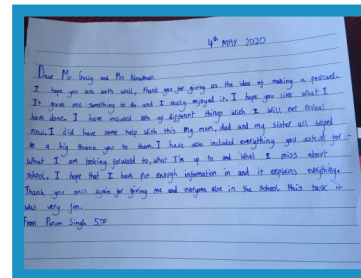 4th MAY 2020
Dear Mr Gray and Mr Newman.
I hope you are both well, thank you for giving us the idea of making a postcard.
It gave me something to do and I really enjoyed it. I hope you like what I
have done. I have included lots of different things wich I will not reveal
now. I did have some help with this my mom, dad and my sister all helped
so a big thank you to them. I have also included everything you asked for -
What I am looking forward to, what I'm up to and what I miss about
school. I hope that I have put enough information in and it explains everything.
Thank you once again for giving me and everyone else in the school this task it
was very fun.
From Puran Singh 5JF